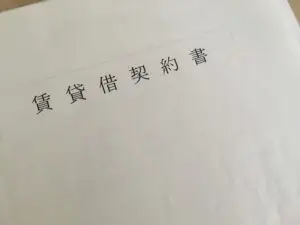 賃貸借契約書